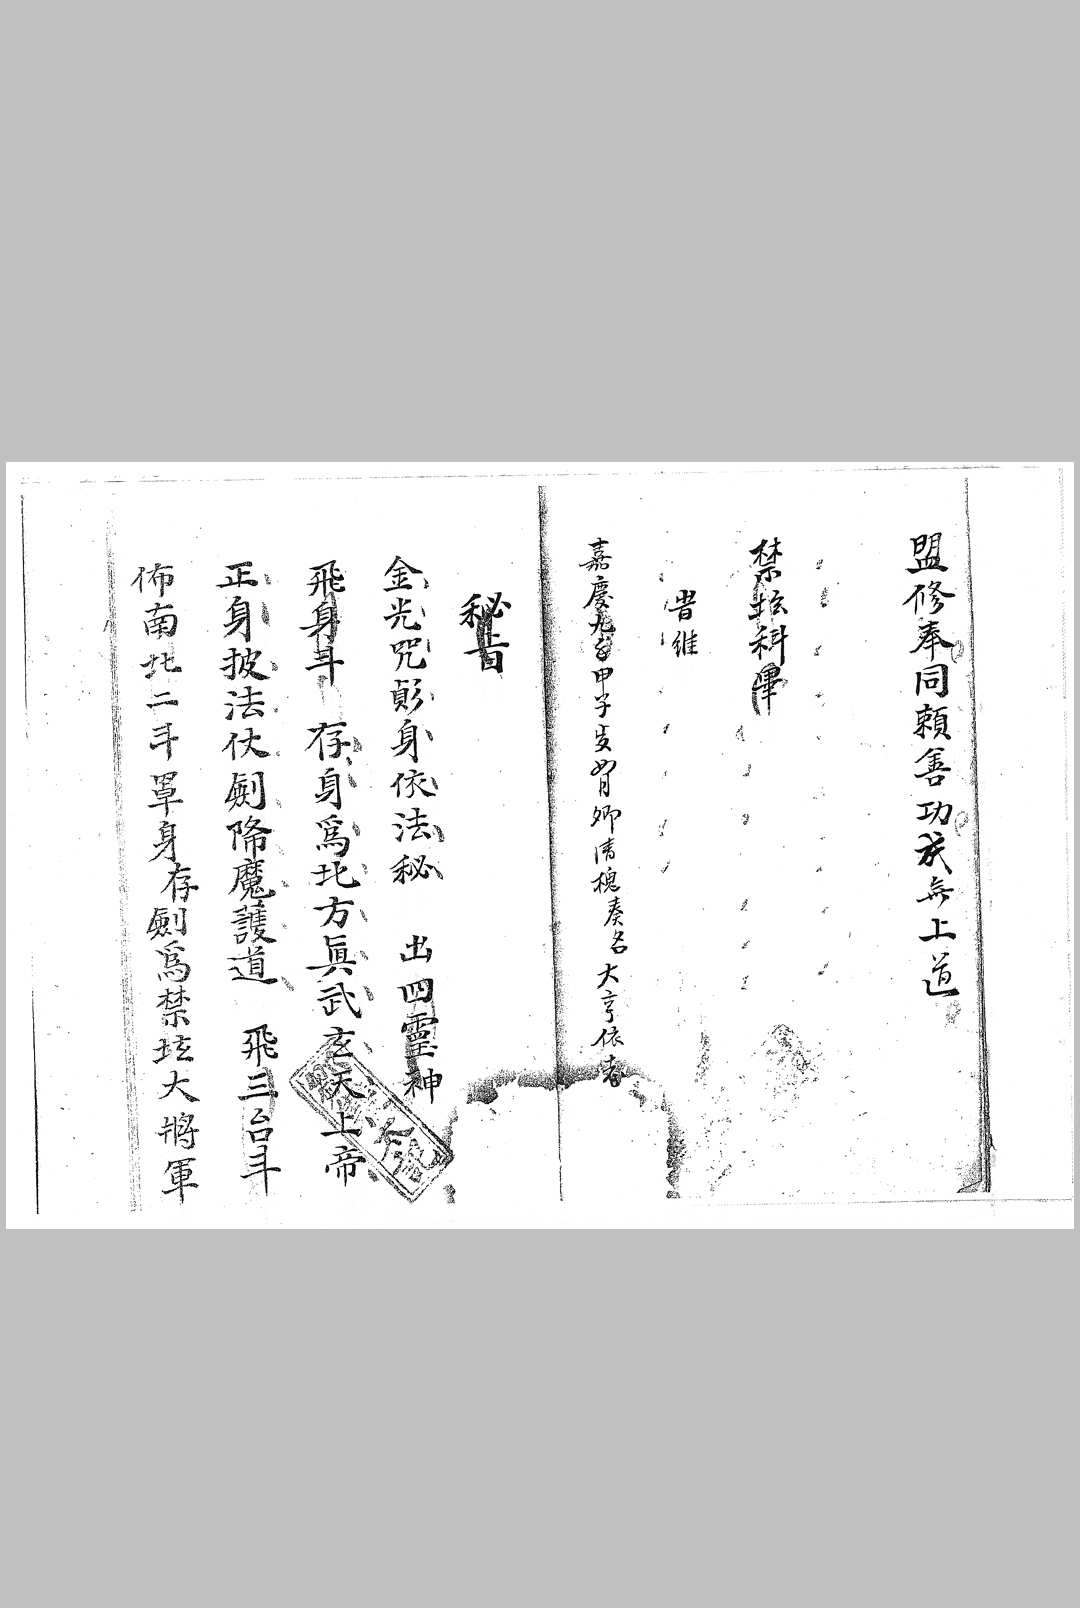 盟修奉同賴善功成無上道
禁坛科畢
旹維
嘉慶九年甲子歲卿清槐奏名大亨依
秘旨
金光咒 身依法秘 出四靈神
飛身斗 存身爲北方眞武玄天上帝
正身披法仗劍降魔護道 飛三台斗
佈南北二斗罩身存劍爲禁坛大將軍